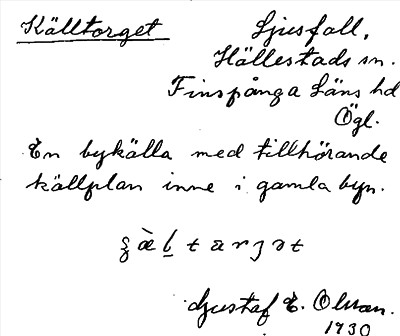 Källtorget
Ljusfall,
Hällestads sn.
Finspånga Läns hd
Ögl.
En bykälla med tillhörande
källplan inne i gamla byn.
Gustaf E. Olsson.
1930